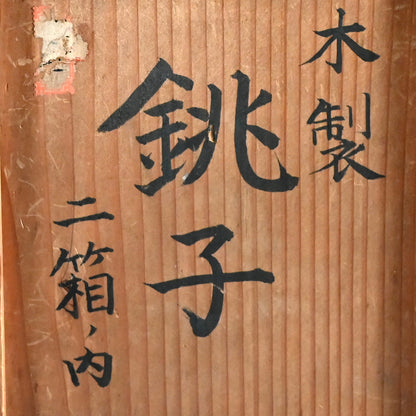 木製
銚子
二箱ノ内